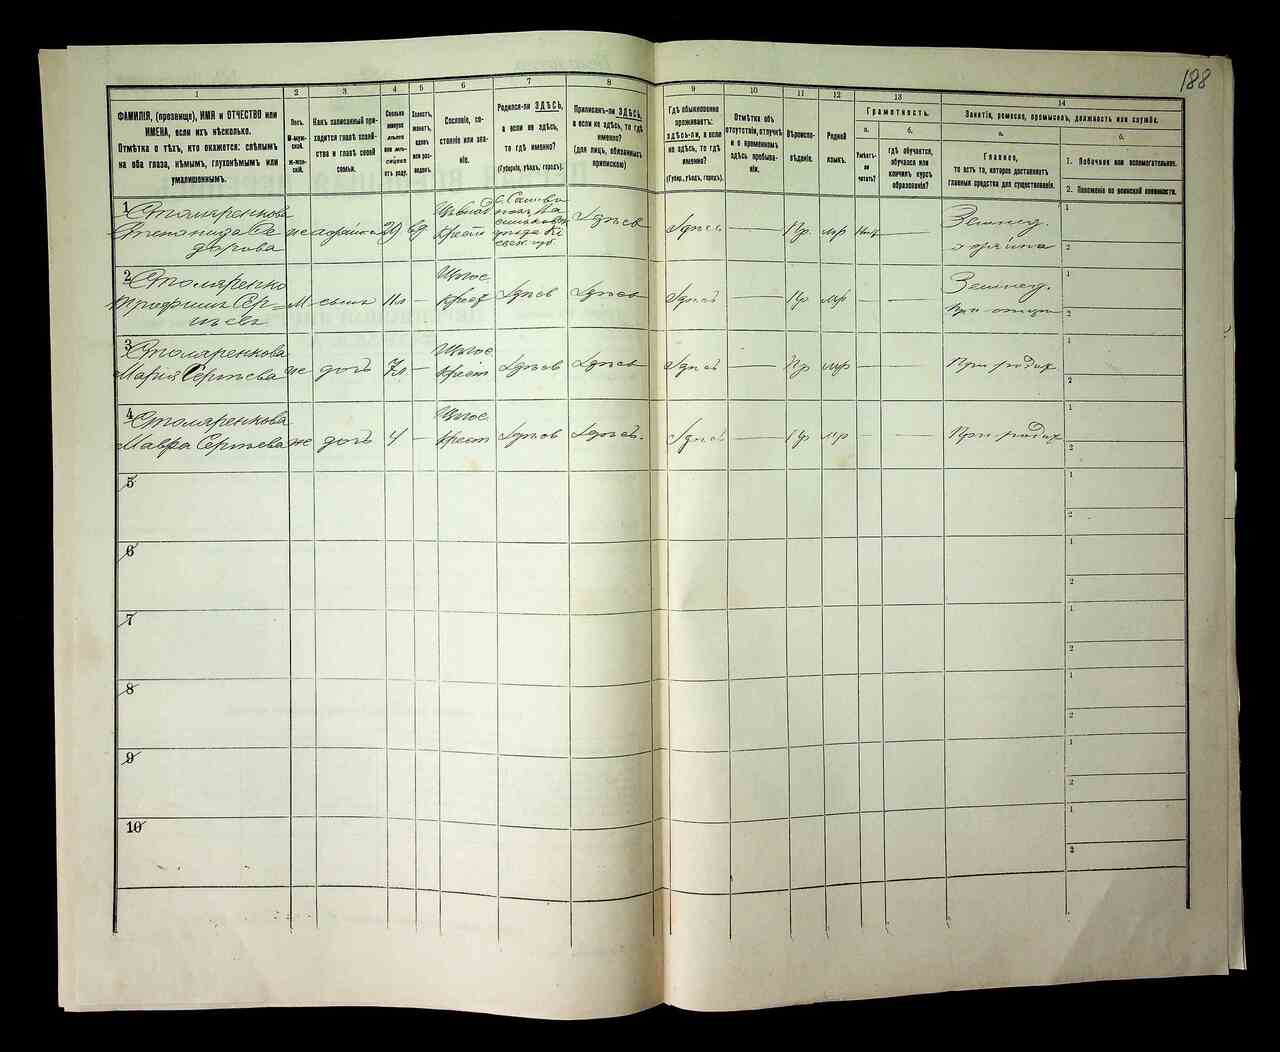 188
1 2 3 4 5 6 7 8 9 10 11 12 13 14
ФАМИЛІЯ, (прозвище), ИМЯ и ОТЧЕСТВО или
ИМЕНА, если ихъ нѣсколько.
Отмѣтка о тѣхъ, кто окажется: слѣпымъ
на оба глаза, нѣмымъ, глухонѣмымъ или
умалишеннымъ.
Полъ.
М-муж-
ской.
Ж-жен-
скій.
Какъ записанный при-
ходится главѣ хозяй-
ства и главѣ своей
семьи.
Сколько
минуло
лѣтъ
или мѣ-
сяцевъ
отъ роду.
Холостъ,
женатъ,
вдовъ
или раз-
веденъ.
Сословіе, со-
стояніе или зва-
ніе.
Родился-ли ЗДѢСЬ,
а если не здѣсь,
то гдѣ именно?
(Губернія, уѣздъ, городъ).
Приписанъ-ли ЗДѢСЬ,
а если не здѣсь, то гдѣ
именно?
(для лицъ, обязанныхъ
припискою)
Гдѣ обыкновенно
проживаетъ:
ЗДѢСЬ-ЛИ, а если
не здѣсь, то гдѣ
именно?
(Губер., уѣздъ, городъ).
Отмѣтка объ
отсутствіи, отлучкѣ
и о временномъ
здѣсь пребыва-
ніи.
Вѣроиспо-
вѣданіе.
Родной
языкъ.
Грамотность.
а. б.
Умѣетъ-
ли
читать?
гдѣ обучается,
обучался или
кончилъ курсъ
образованія?
Занятіе, ремесло, промыселъ, должность или служба.
а. б.
Главное,
то есть то, которое доставляетъ
главныя средства для существованія.
1. Побочное или вспомогательное.
2. Положеніе по воинской повинности.
1
Столяренкова
Степанида Ѳе
дорова
же
хозяйка
29
вд
Крест
Здѣсь
Здѣсь
Пр
мр
Нѣтъ
Землед.
хозяйка
1
2
2
Столяренко
Трофимъ Сер-
гѣевъ
м
сынъ
11л
Крест
Здѣсь
Здѣсь
Здѣсь
Пр
мр
Землед.
При отцѣ
1
2
3
Столяренкова
Марія Сергѣева
же
дочь
7л
Крест
Здѣсь
Здѣсь
Здѣсь
Пр
мр
При родит
1
2
4
Столяренкова
Мавра Сергѣева
же
дочь
4
Крест
Здѣсь
Здѣсь
Здѣсь
Пр
мр
При родит
1
2
5
1
2
6
1
2
7
1
2
8
1
2
9
1
2
10
1
2